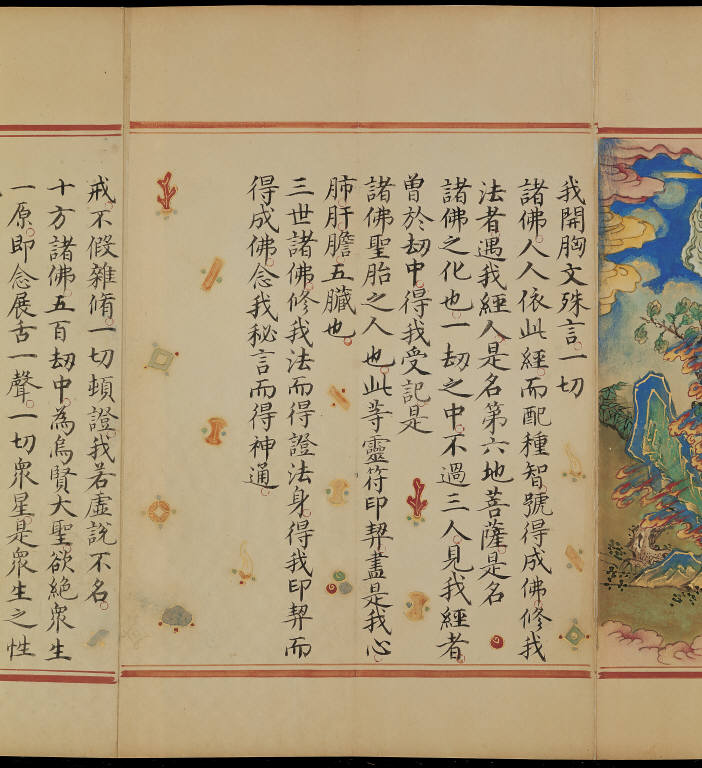 我開胸文殊言一切
諸佛人人依此經而配種智號得成佛修我
法者遇我經人是名第六地菩薩是名
諸佛之化也一刼之中不過三人見我經者
曾於刼中得我受記是
諸佛聖胎之人也此等靈符印契盡是我心
肺肝膽五臟也
三世諸佛修我法而得證法身得我印契而
得成佛念我秘言而得神通
戒不假雜脩一切頓證我若虛說不名
十方諸佛五百刼中為烏賢大聖欲絕眾生
一原即念展舌一聲一切眾星是眾生之性